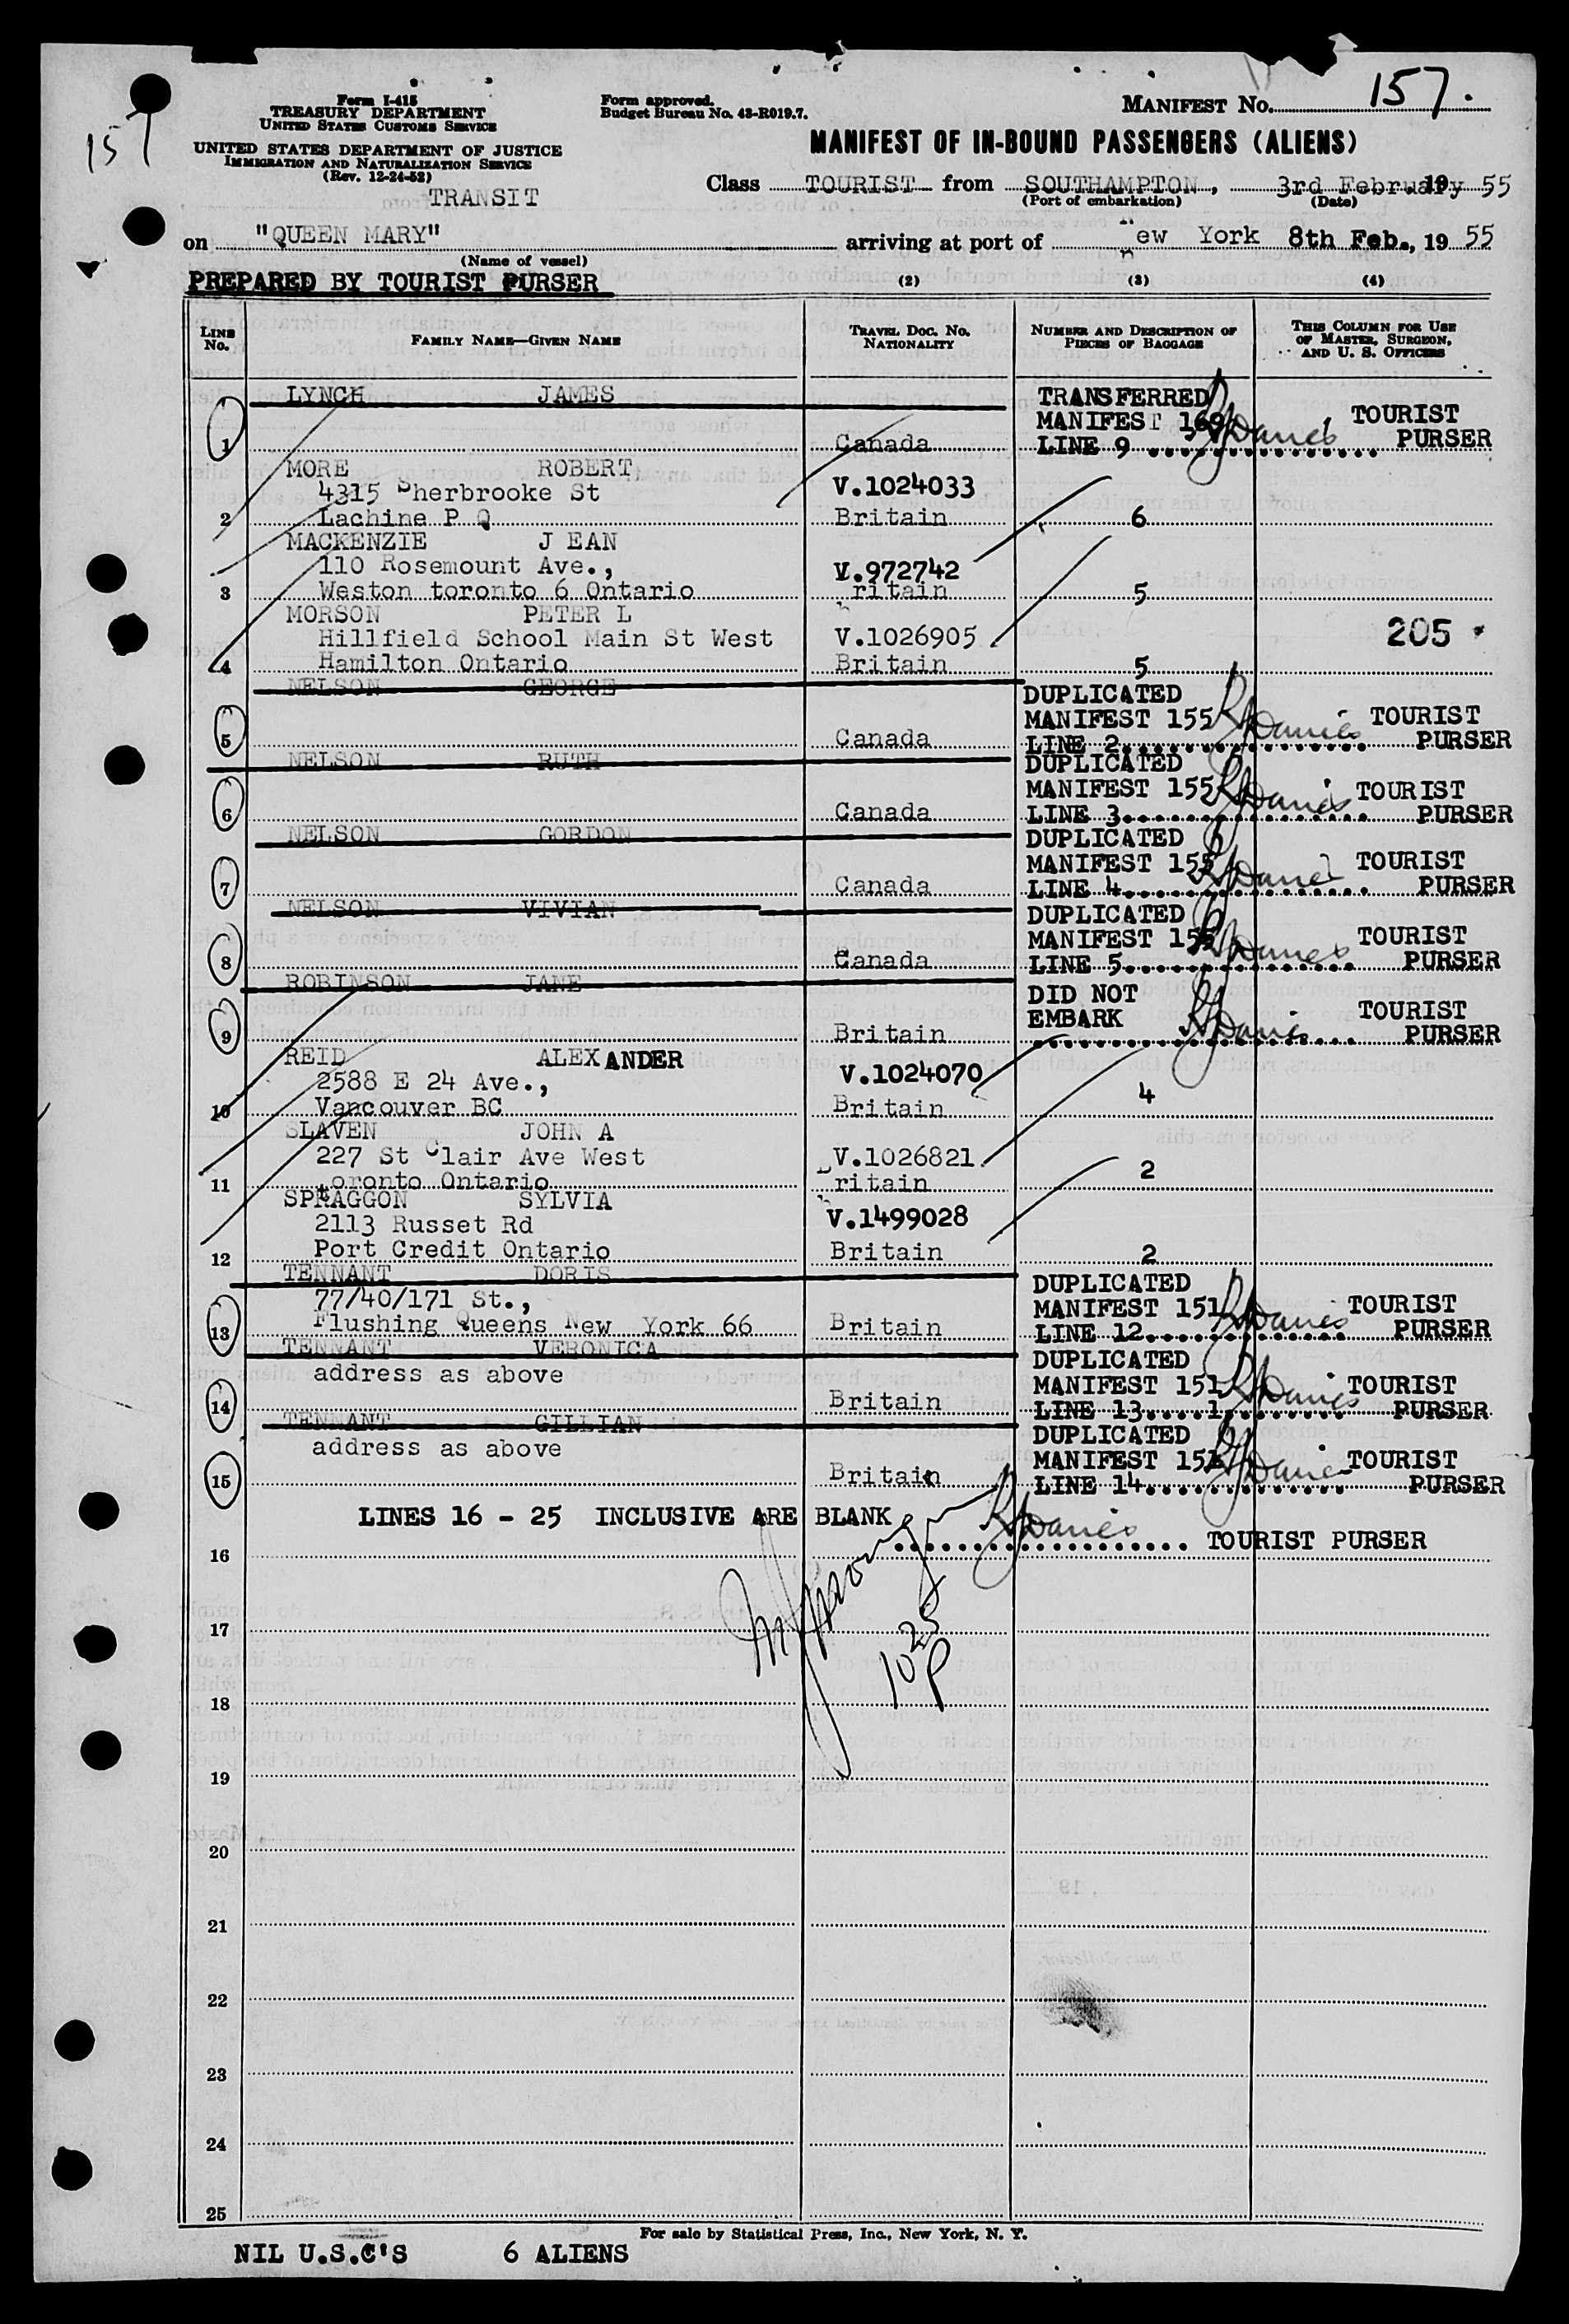 157
Form I-415
TREASURY DEPARTMENT
UNITED STATES CUSTOMS SERVICE
UNITED STATES DEPARTMENT OF JUSTICE
IMMIGRATION AND NATURALIZATION SERVICE
(Rev. 12-24-52)
TRANSIT
Form approved.
Budget Bureau No. 43-R019.7.
MANIFEST No. 157.
MANIFEST OF IN-BOUND PASSENGERS (ALIENS)
Class TOURIST from SOUTHAMPTON, 3rd February 19 55
(Port of embarkation) (Date)
on "QUEEN MARY" arriving at port of New York 8th Feb., 19 55
(Name of vessel)
PREPARED BY TOURIST PURSER
(2) (3) (4)
LINE No. FAMILY NAME—GIVEN NAME TRAVEL DOC. NO. NATIONALITY NUMBER AND DESCRIPTION OF PIECES OF BAGGAGE THIS COLUMN FOR USE OF MASTER, SURGEON, AND U. S. OFFICERS
LYNCH JAMES TRANSFERRED
MANIFEST 169 TOURIST
1 Canada LINE 9 PURSER
MORE ROBERT
4315 Sherbrooke St V.1024033
2 Lachine P Q Britain 6
MACKENZIE J EAN
110 Rosemount Ave., V.972742
3 Weston toronto 6 Ontario Britain 5
MORSON PETER L
Hillfield School Main St West V.1026905 205
4 Hamilton Ontario Britain 5
NELSON GEORGE DUPLICATED
MANIFEST 155 TOURIST
5 Canada LINE 2 PURSER
NELSON RUTH DUPLICATED
MANIFEST 155 TOURIST
6 Canada LINE 3 PURSER
NELSON GORDON DUPLICATED
MANIFEST 155 TOURIST
7 Canada LINE 4 PURSER
NELSON VIVIAN DUPLICATED
MANIFEST 155 TOURIST
8 Canada LINE 5 PURSER
ROBINSON JANE DID NOT
EMBARK TOURIST
9 Britain PURSER
REID ALEXANDER
2588 E 24 Ave., V.1024070
10 Vancouver BC Britain 4
SLAVEN JOHN A
227 St Clair Ave West V.1026821
11 toronto Ontario Britain 2
SPRAGGON SYLVIA
2113 Russet Rd V.1499028
12 Port Credit Ontario Britain 2
TENNANT DORIS DUPLICATED
77/40/171 St., MANIFEST 151 TOURIST
13 Flushing Queens New York 66 Britain LINE 12 PURSER
TENNANT VERONICA DUPLICATED
address as above MANIFEST 151 TOURIST
14 Britain LINE 13 PURSER
TENNANT GILLIAN DUPLICATED
address as above MANIFEST 151 TOURIST
15 Britain LINE 14 PURSER
LINES 16 - 25 INCLUSIVE ARE BLANK
16 TOURIST PURSER
17
1025
P
18
19
20
21
22
23
24
25
For sale by Statistical Press, Inc., New York, N. Y.
NIL U.S.C'S 6 ALIENS